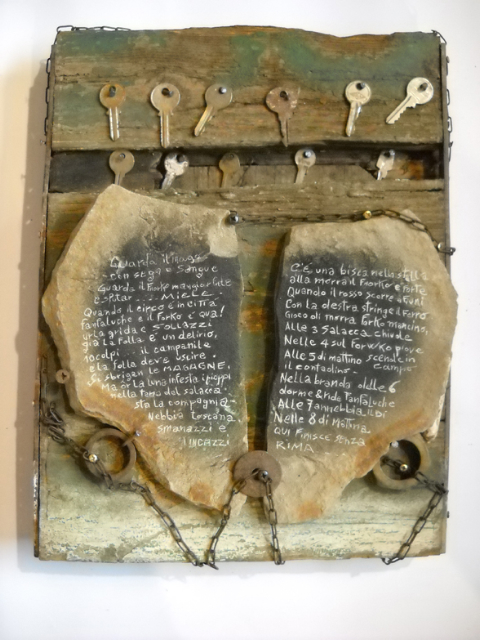 Guarda il mago
con sega e Sangue
Guarda il Forko maggior fort
MIELE
Quando il circo è in città
Fantaluche è il Forko è qua!
SOLLAZZI
già la Folla è un delirio,
10 colpi il campanile
e la folla deve uscire.
Si sbrigan le MAGAGNE,
Ma la luna infesta i
nella Farmo del salacca.
sta la compagnia
Nebbia toscana,
smanazzi e
INCAZZI
C'è una bisca nella stalla
alla morra il Fworko è forte
Quando il rosso scorre a Funi
Con la destra stringe il Ferro
Gioco di morra Forko mancino,
Alle 3 Salacca chiude
Nelle 4 sul piove
Alle 5 di mattino scende in
il contadino campo
Nella branda delle 6
dorme & ride Fantaluche
Alle 7 annebbia il Dì
Nelle 8 di Mattina
QUI FINISCE SENZA
RIMA